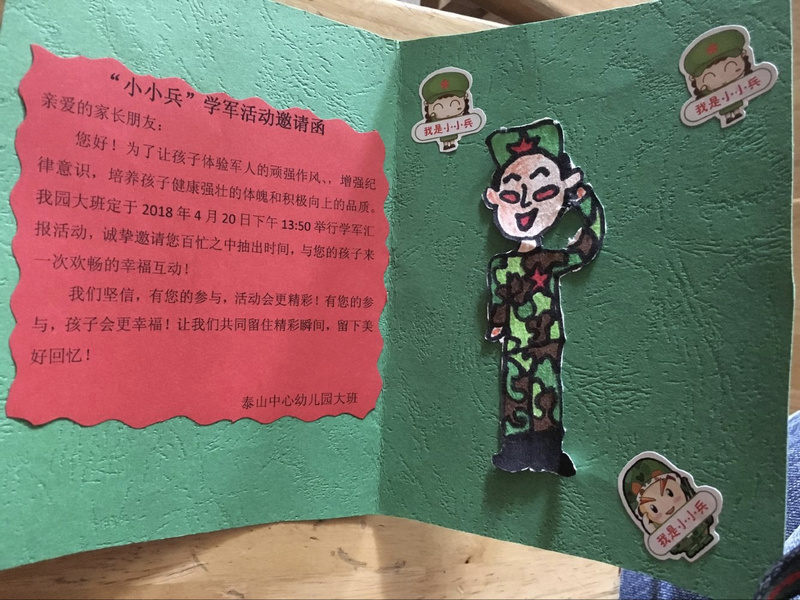 “小小兵”学军活动邀请函
亲爱的家长朋友：
您好！为了让孩子体验军人的顽强作风、，增强纪
律意识，培养孩子健康强壮的体魄和积极向上的品质。
我园大班定于 2018 年 4 月 20 日下午 13:50 举行学军汇
报活动，诚挚邀请您百忙之中抽出时间，与您的孩子来
一次欢畅的幸福互动！
我们坚信，有您的参与，活动会更精彩！有您的参
与，孩子会更幸福！让我们共同留住精彩瞬间，留下美
好回忆！
泰山中心幼儿园大班
我是小小兵
我是小小兵
我是小小兵